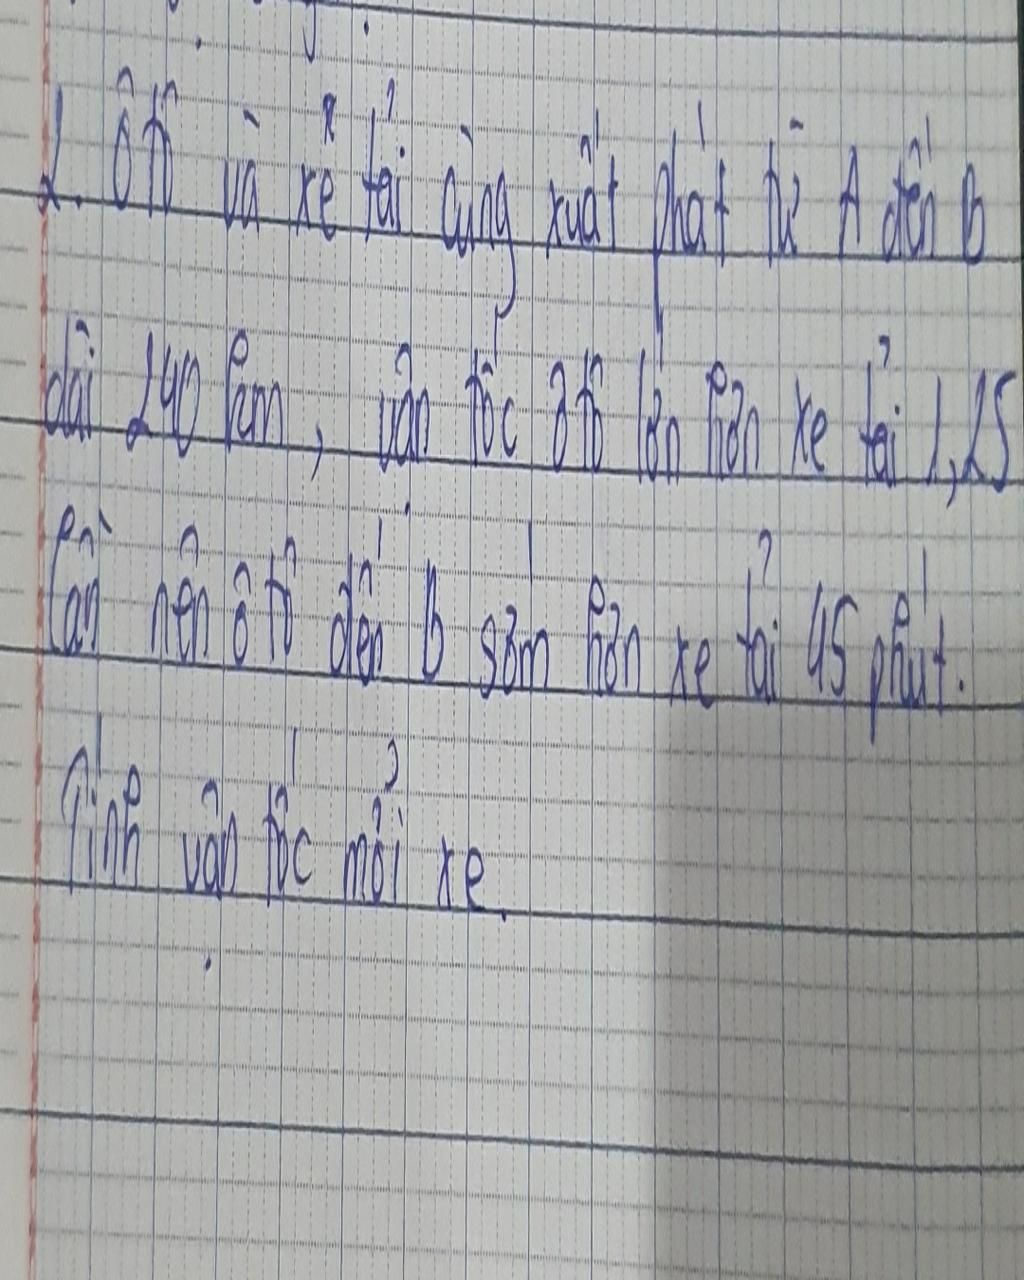 2. Ôtô và xe tải cùng xuất phát từ A đến B
dài 240 km, vận tốc ôtô lớn hơn xe tải 1,25
lần nên ô tô đến B sớm hơn xe tải 45 phút.
Tính vận tốc mỗi xe.